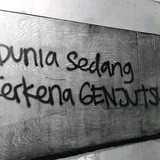 Dunia Sedang
Terkena GENJUTSU